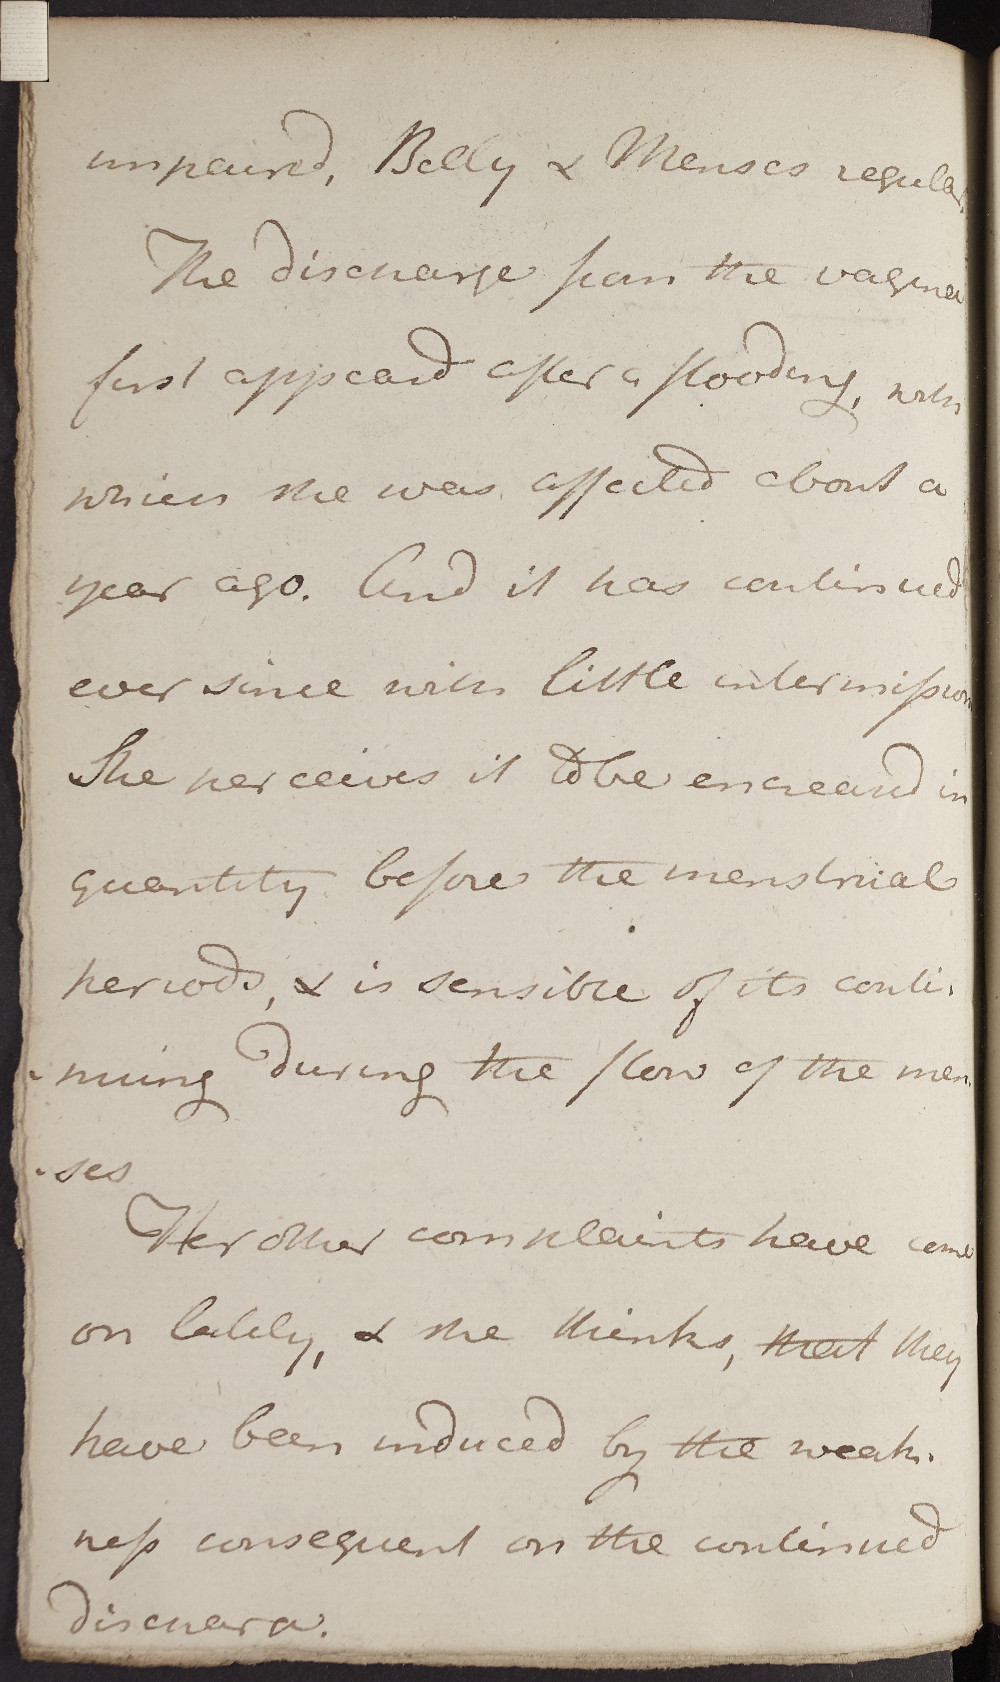 impaired, Belly & Menses regular.
The discharge from the vagina
first appeard after a flooding, with
which she was affected about a
year ago. And it has continued
ever since with little intermission
She perceives it to be encreasd in
quantity before the menstrual
periods, & is sensible of its conti-
-nuing during the flow of the men-
-ses
Her other complaints have come
on lately, & she thinks, that they
have been induced by the weak-
ness consequent on the continued
discharge.